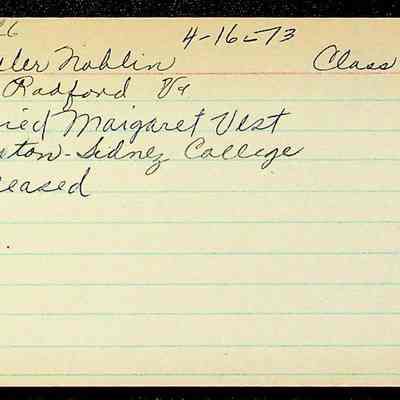 26 4-16-73
ler Noblin Class
Radford Va
ried Margaret Vest
ton-Sidney College
eased